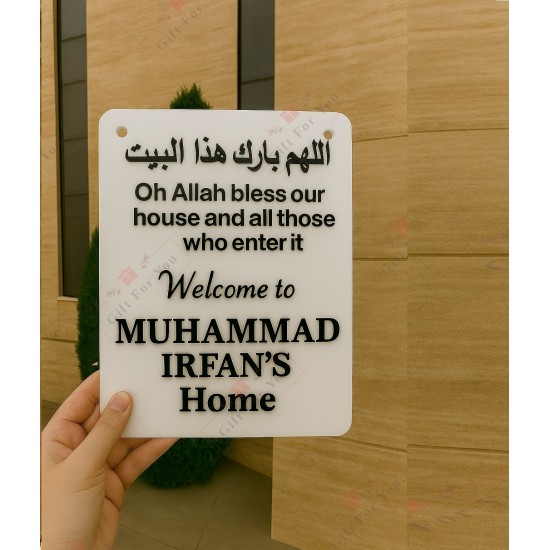 اللهم بارك هذا البيت
Oh Allah bless our
house and all those
who enter it
Welcome to
MUHAMMAD
IRFAN'S
Home
Gift For You